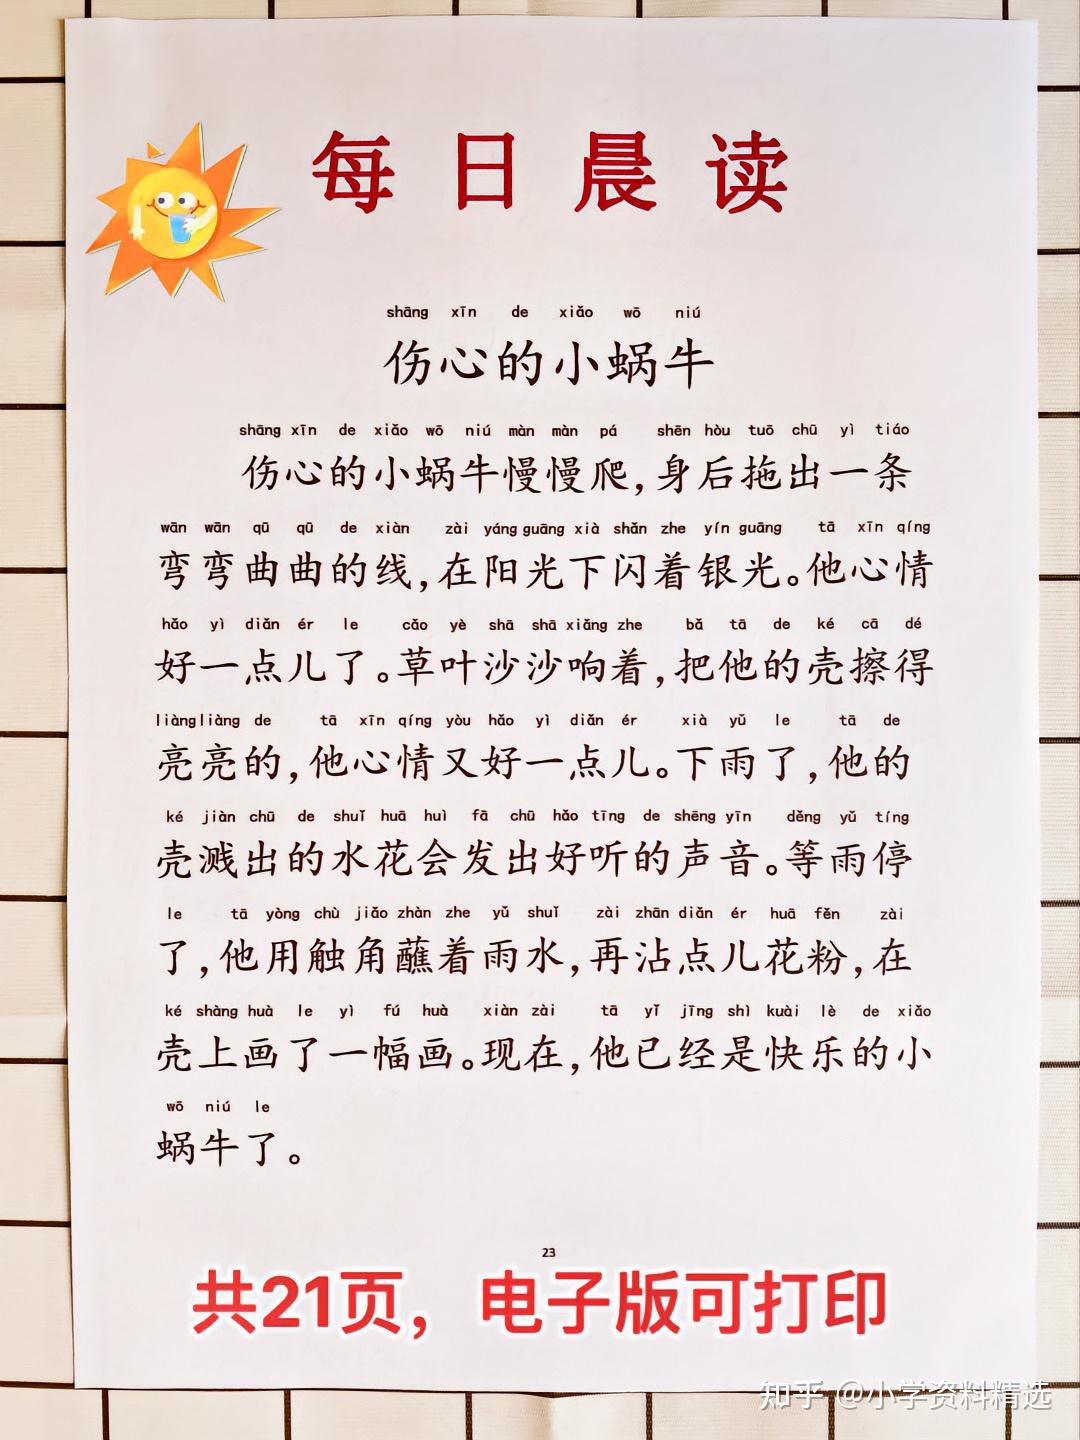 每日晨读
shāng xīn de xiǎo wō niú
伤心的小蜗牛
shāng xīn de xiǎo wō niú màn màn pá shēn hòu tuō chū yì tiáo
伤心的小蜗牛慢慢爬,身后拖出一条
wān wān qū qū de xiàn zài yáng guāng xià shǎn zhe yín guāng tā xīn qíng
弯弯曲曲的线,在阳光下闪着银光。他心情
hǎo yì diǎn ér le cǎo yè shā shā xiǎng zhe bǎ tā de ké cā dé
好一点儿了。草叶沙沙响着,把他的壳擦得
liàng liàng de tā xīn qíng yòu hǎo yì diǎn ér xià yǔ le tā de
亮亮的,他心情又好一点儿。下雨了,他的
ké jiàn chū de shuǐ huā huì fā chū hǎo tīng de shēng yīn děng yǔ tíng
壳溅出的水花会发出好听的声音。等雨停
le tā yòng chù jiǎo zhàn zhe yǔ shuǐ zài zhān diǎn ér huā fěn zài
了,他用触角蘸着雨水,再沾点儿花粉,在
ké shàng huà le yì fú huà xiàn zài tā yǐ jīng shì kuài lè de xiǎo
壳上画了一幅画。现在,他已经是快乐的小
wō niú le
蜗牛了。
23
共21页，电子版可打印
知乎 @小学资料精选